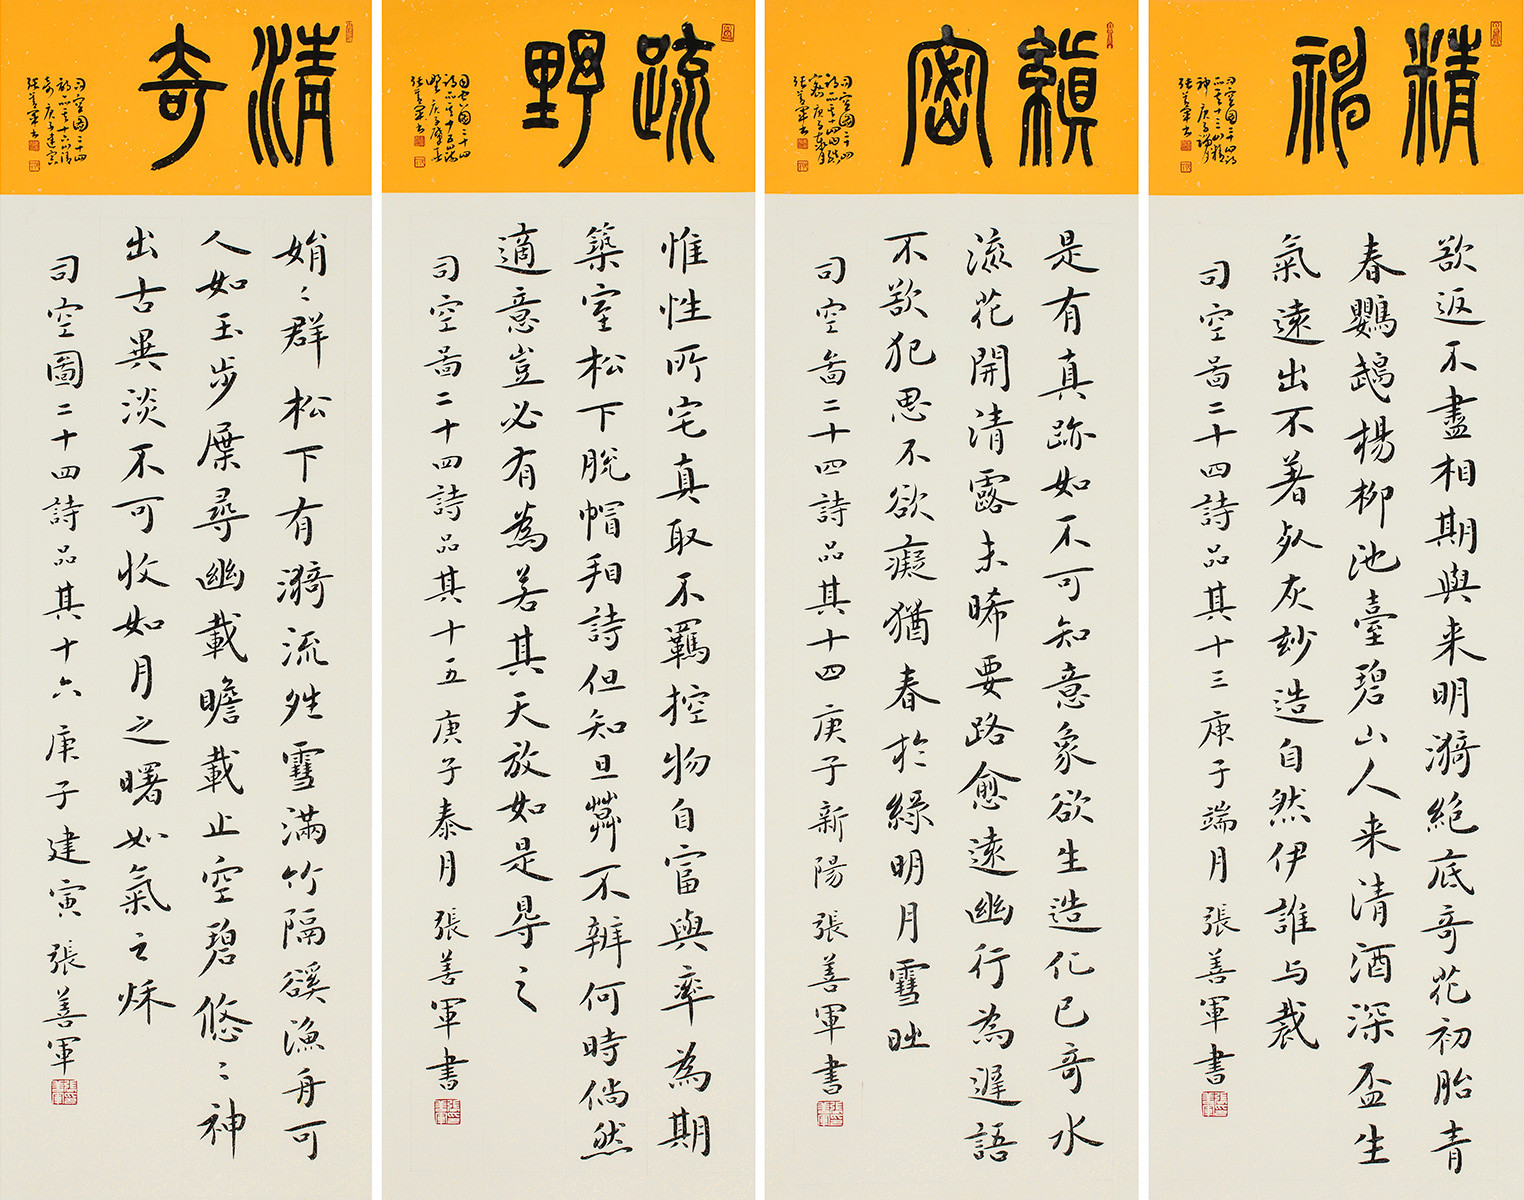 精神
司空圖二十四詩
品其十三曰精
神庚子端月
張善軍書
欲返不盡相期與来明漪絶底奇花初胎青
春鸚鵡楊柳池臺碧山人来清酒深盃生
氣遠出不著死灰妙造自然伊誰与裁
司空啚二十四詩品其十三庚子端月張善軍書
縝密
司空圖二十四
詩品其十四曰縝
密庚子月
張善軍書
是有真跡如不可知意象欲生造化已奇水
流花開清露未晞要路愈遠幽行為遲語
不欲犯思不欲癡猶春於綠明月雪時
司空啚二十四詩品其十四庚子新陽張善軍書
疏野
司空圖二十四
詩品其十五曰疏
野庚子肇春
張善軍書
惟性所宅真取不羈控物自富與率為期
築室松下脫帽看詩但知旦暮不辨何時倘然
適意豈必有為若其天放如是得之
司空啚二十四詩品其十五庚子泰月張善軍書
清奇
司空圖二十四
詩品其十六曰清
奇庚子建寅
張善軍書
娟〻群松下有漪流晴雪滿竹隔谿漁舟可
人如玉步屧尋幽載瞻載止空碧悠〻神
出古異淡不可收如月之曙如氣之秋
司空圖二十四詩品其十六庚子建寅張善軍